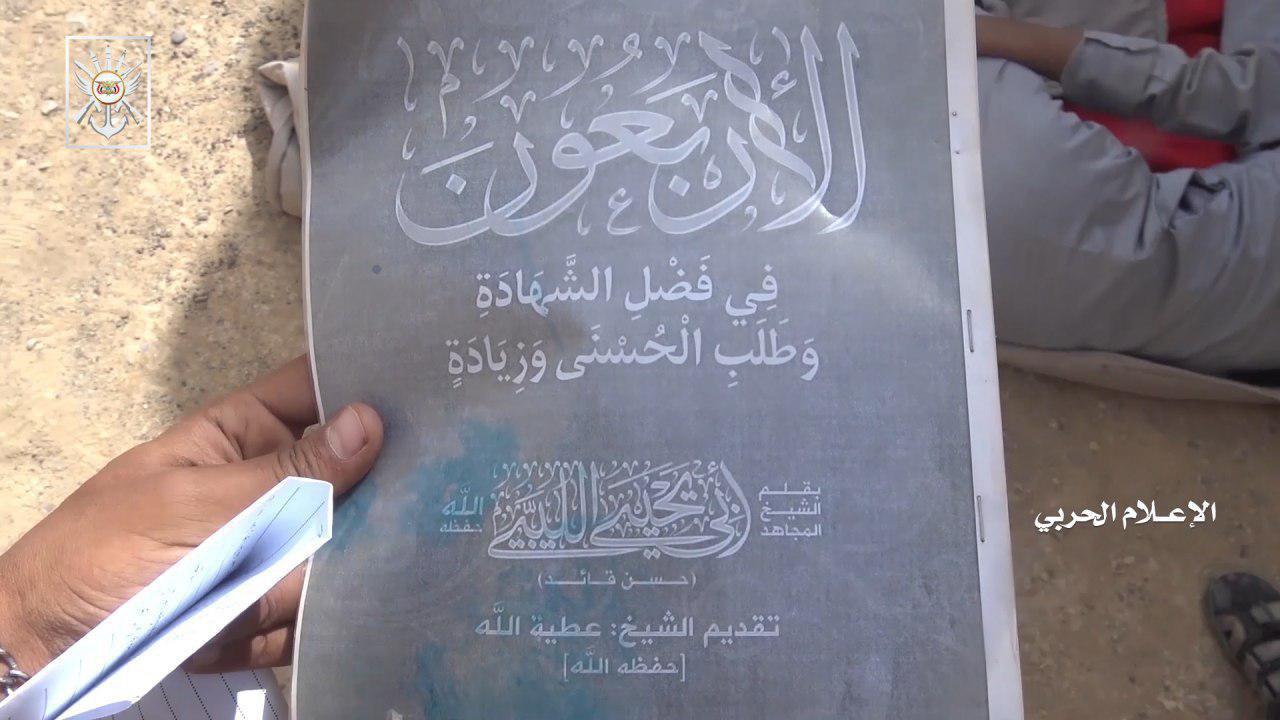 الأَرْبَعُونَ
فِي فَضْلِ الشَّهَادَةِ
وَطَلَبِ الْحُسْنَى وَزِيَادَةٍ
بقلم
الشيخ
المجاهد
أبي يحيى الليبي
حفظه
الله
(حسن قائد)
تقديم الشيخ: عطية الله
[حفظه الله]
الإعلام الحربي